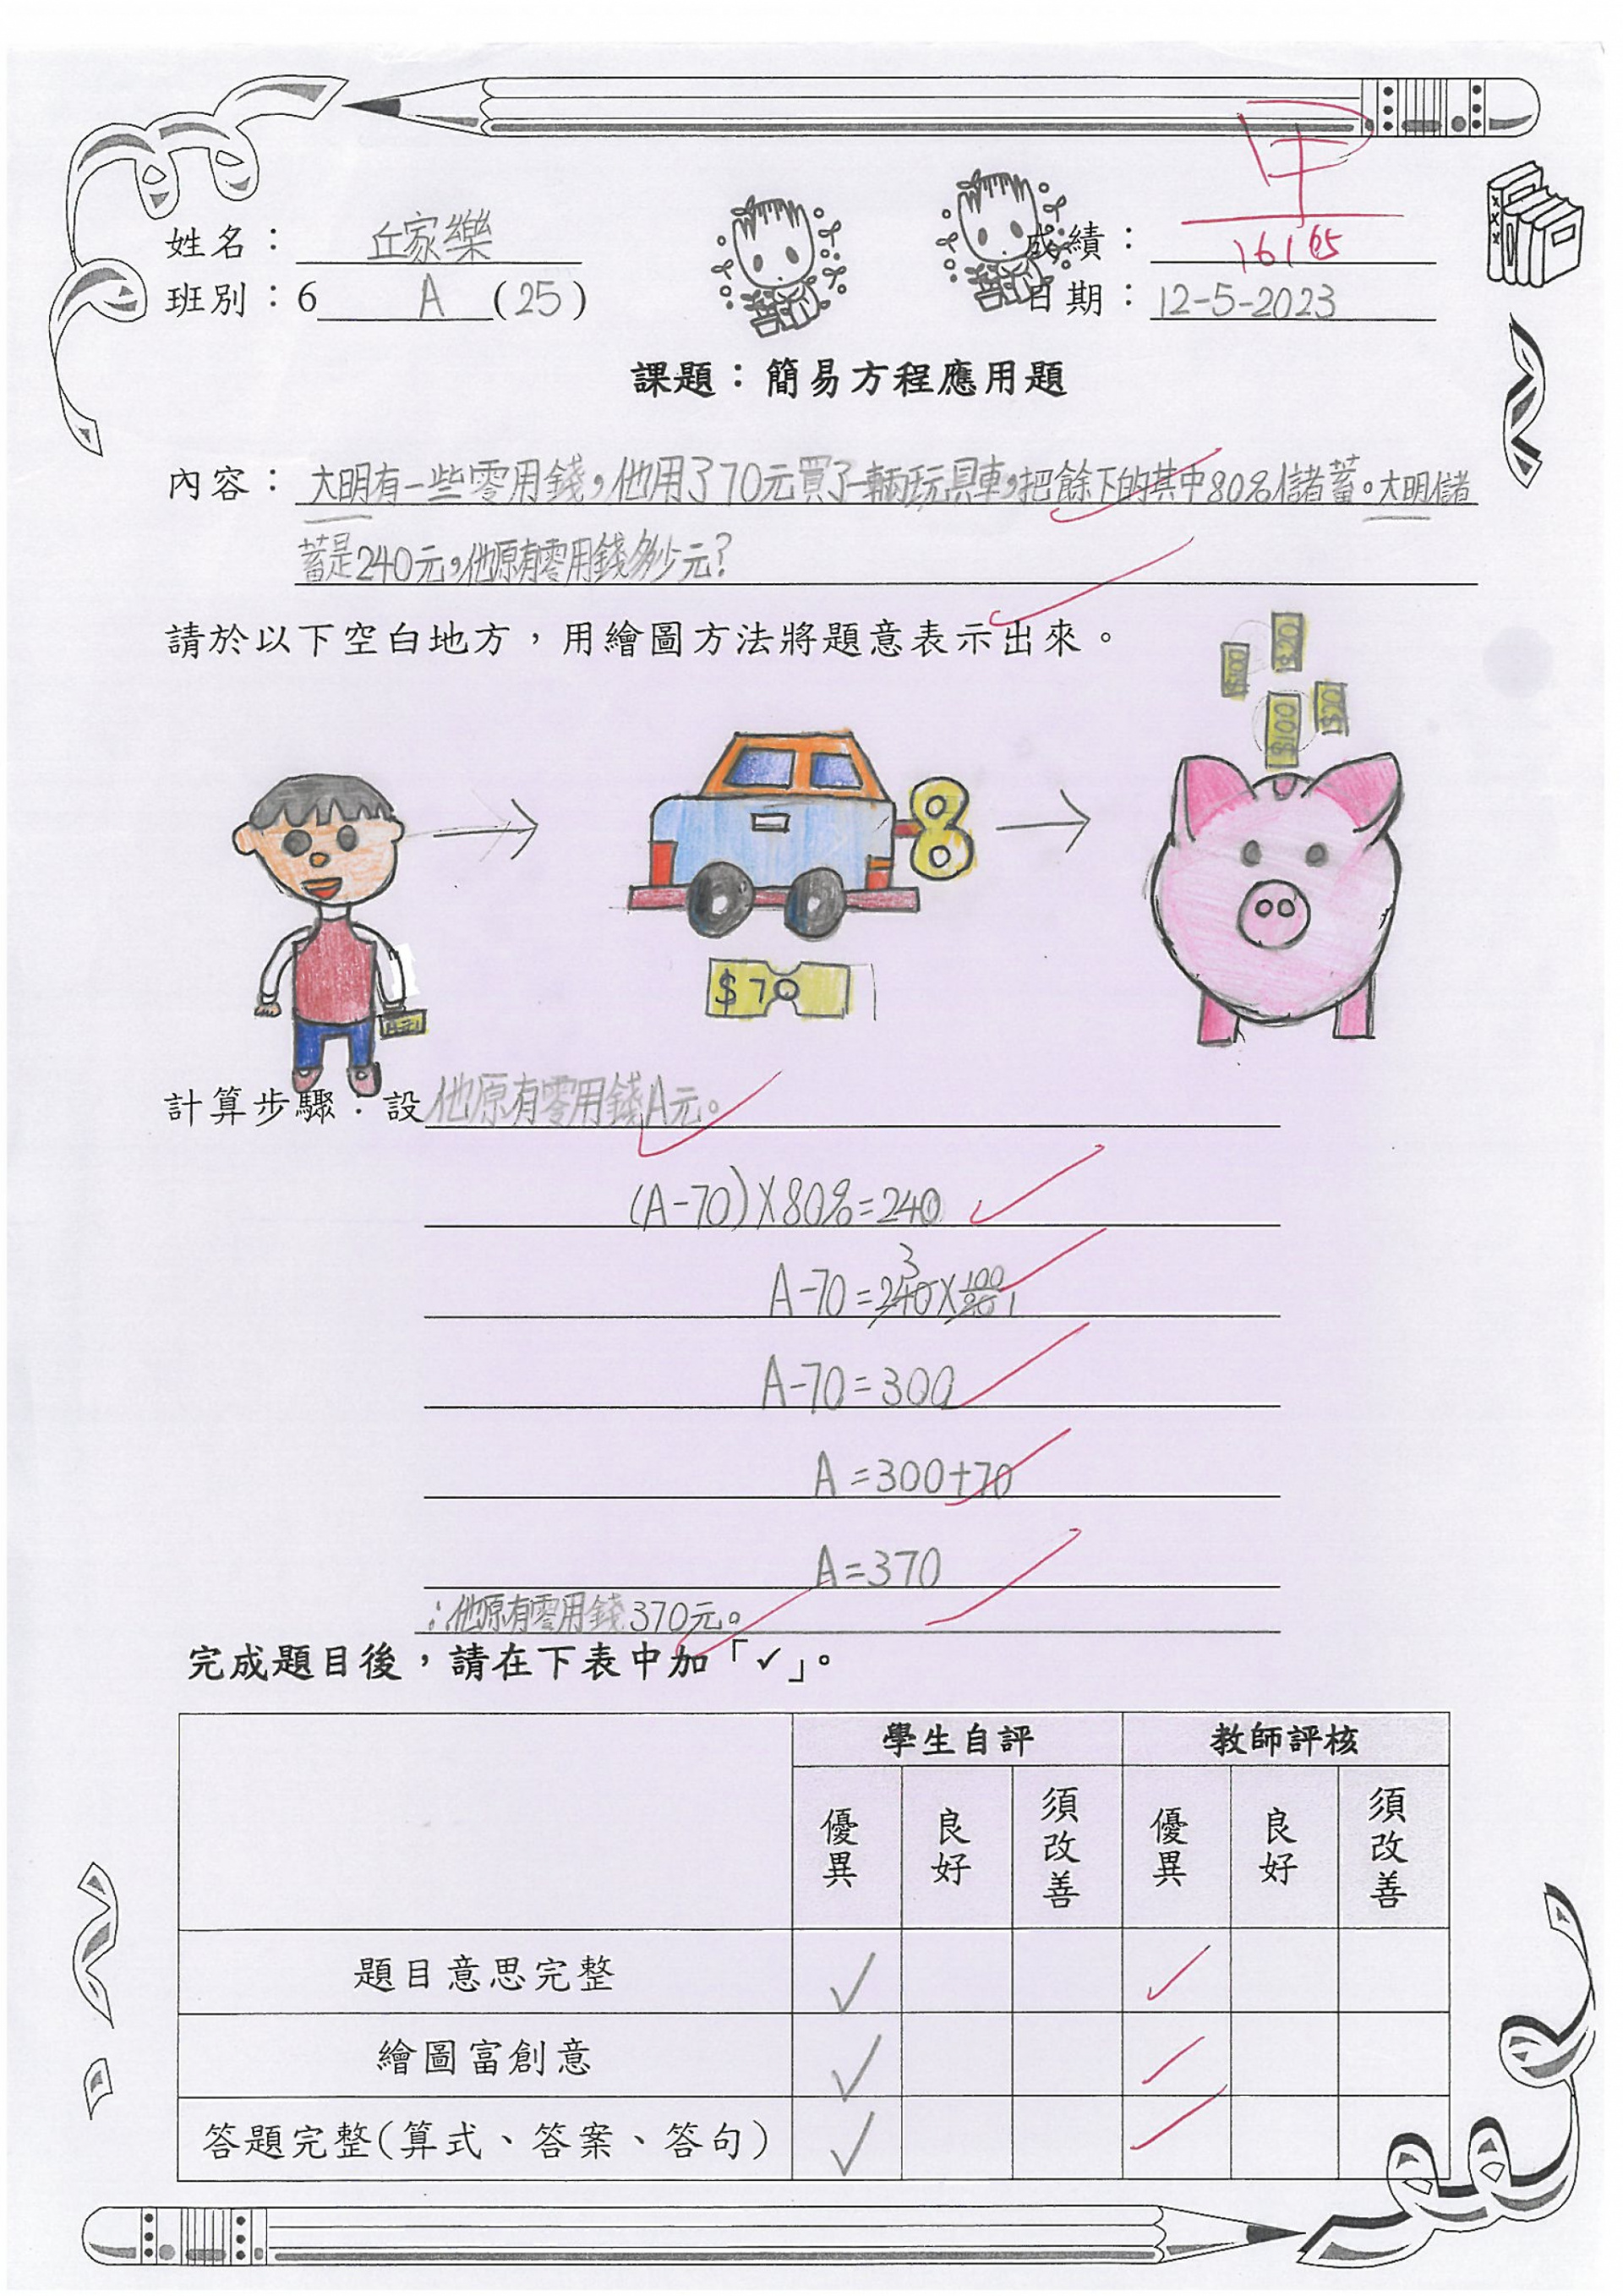 姓名： 丘家樂 成績： 甲
班別：6 A (25) 日期：12-5-2023
課題：簡易方程應用題
內容： 大明有一些零用錢，他用了70元買了一輛玩具車，把餘下的其中80%儲蓄。大明儲
蓄是240元，他原有零用錢多少元？
請於以下空白地方，用繪圖方法將題意表示出來。
$100
$100
$20
$20
$70
計算步驟：設他原有零用錢A元。
(A-70)×80%=240
3
A-70=240×100/80 1
A-70=300
A=300+70
A=370
∴他原有零用錢370元。
完成題目後，請在下表中加「✓」。
學生自評 教師評核
優異 良好 須改善 優異 良好 須改善
題目意思完整 ✓ ✓
繪圖富創意 ✓ ✓
答題完整(算式、答案、答句) ✓ ✓